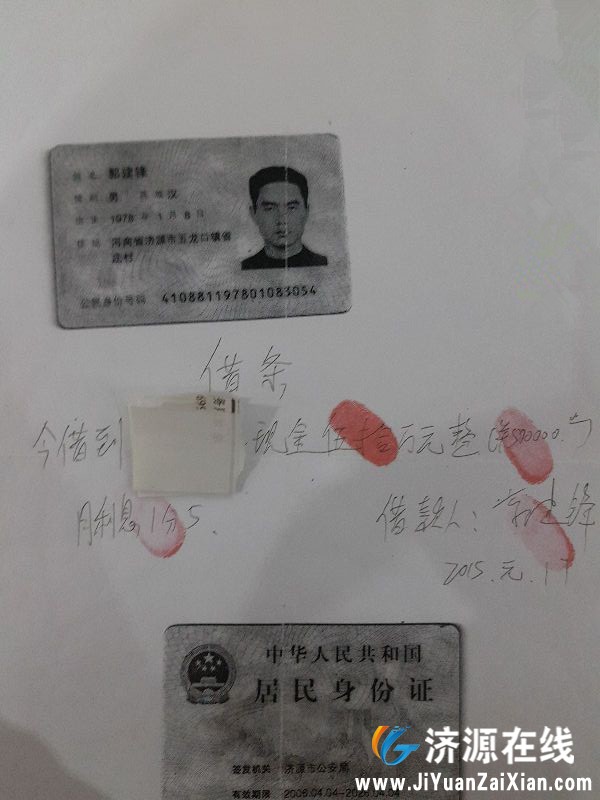 姓名 郭建锋
性别 男 民族 汉
出生 1978 年 1 月 8 日
住址 河南省济源市五龙口镇省
庄村
公民身份号码 410881197801083054
借条
今借到 现金伍拾万元整（¥500000.00）
月利息1分5.
借款人：郭建锋
2015.元.17
中华人民共和国
居民身份证
签发机关 济源市公安局
有效期限 2006.04.04-2026.04.04
济源在线
www.JiYuanZaiXian.com